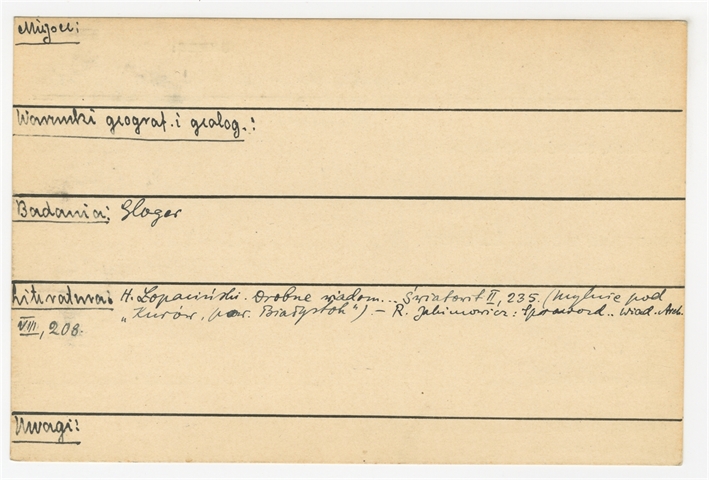 Miejsc:
Warunki geograf. i geolog.:
Badania: Gloger
Literatura: H. Łopaciński. Drobne wiadom... Światowit II, 235. (mylnie pod
„Kurów, pow. Białystok") – R. Jakimowicz: Sprawozd.. Wiad. Arch.
VIII, 208.
Uwagi: